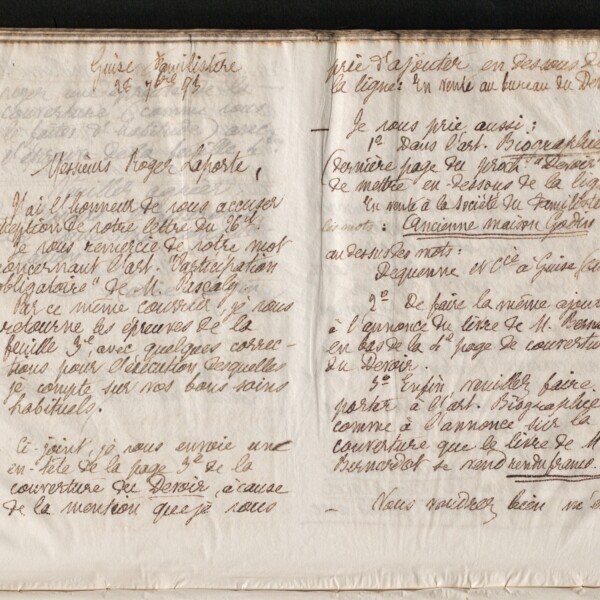 Guise Familistère
28 7bre 93
Messieurs Roger Laporte,
J'ai l'honneur de vous accuser
réception de votre lettre du 26 ct.
Je vous remercie de votre mot
concernant l'art. "Participation
obligatoire" de M. Pascaly.
Par ce même courrier, je vous
retourne les épreuves de la
feuille 3e, avec quelques correc-
tions pour l'exécution desquelles
je compte sur vos bons soins
habituels.
Ci-joint, je vous envoie une
en-tête de la page 3e de la
couverture du Devoir, à cause
de la mention que je vous
prie d'ajouter en dessous de
la ligne: En vente au bureau du Dev
Je vous prie aussi:
1o Dans l'art. Biographie
(dernière page du proch. "Devoir"
de mettre en dessous de la lign
En vente à la Société du Familistè
les mots: Ancienne maison Godin
au dessus des mots:
Dequenne et Cie à Guise
2o De faire la même ajou
à l'annonce du livre de M. Berna
en bas de la 4e page de couvertu
du Devoir.
3o Enfin veuillez faire
porter à l'art. Biographie
comme à l'annonce sur la
couverture que le livre de M
Bernardot se vend rendu franco.
Vous voudrez bien m'en